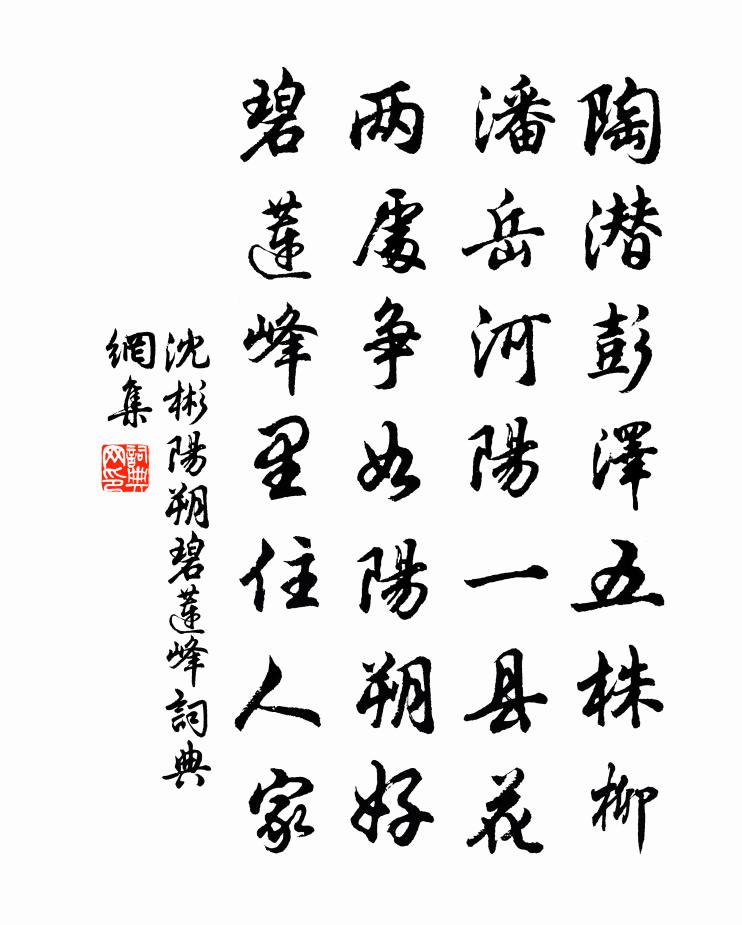 陶潜彭澤五株柳
潘岳河陽一县花
两處争如陽朔好
碧蓮峰里住人家
沈彬陽朔碧蓮峰詞典
網集
詞典
网印